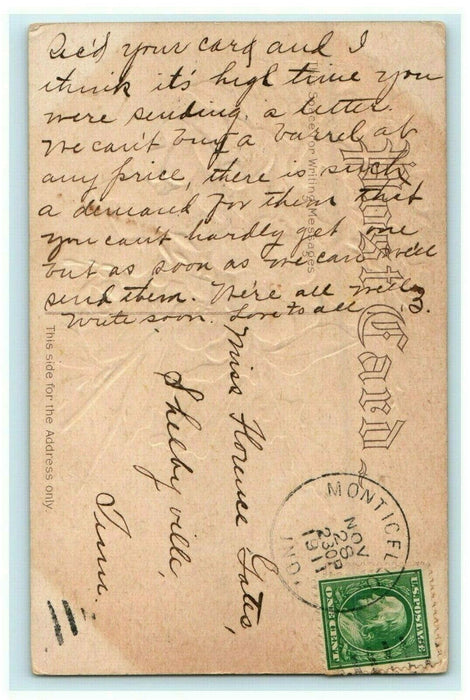 Rec'd your card and I
think it's high time you
were sending a letter.
We can't buy a barrel at
any price, there is such
a demand for them that
you can't hardly get one
but as soon as we can we'll
send them. We're all well
Write soon. Love to all
Miss Florence Gates,
Shelbyville,
Tenn.
Post Card
Space for Writing Messages
This side for the Address only.
MONTICELLO
NOV
28
230P
1911
IND.
U.S. POSTAGE
ONE CENT